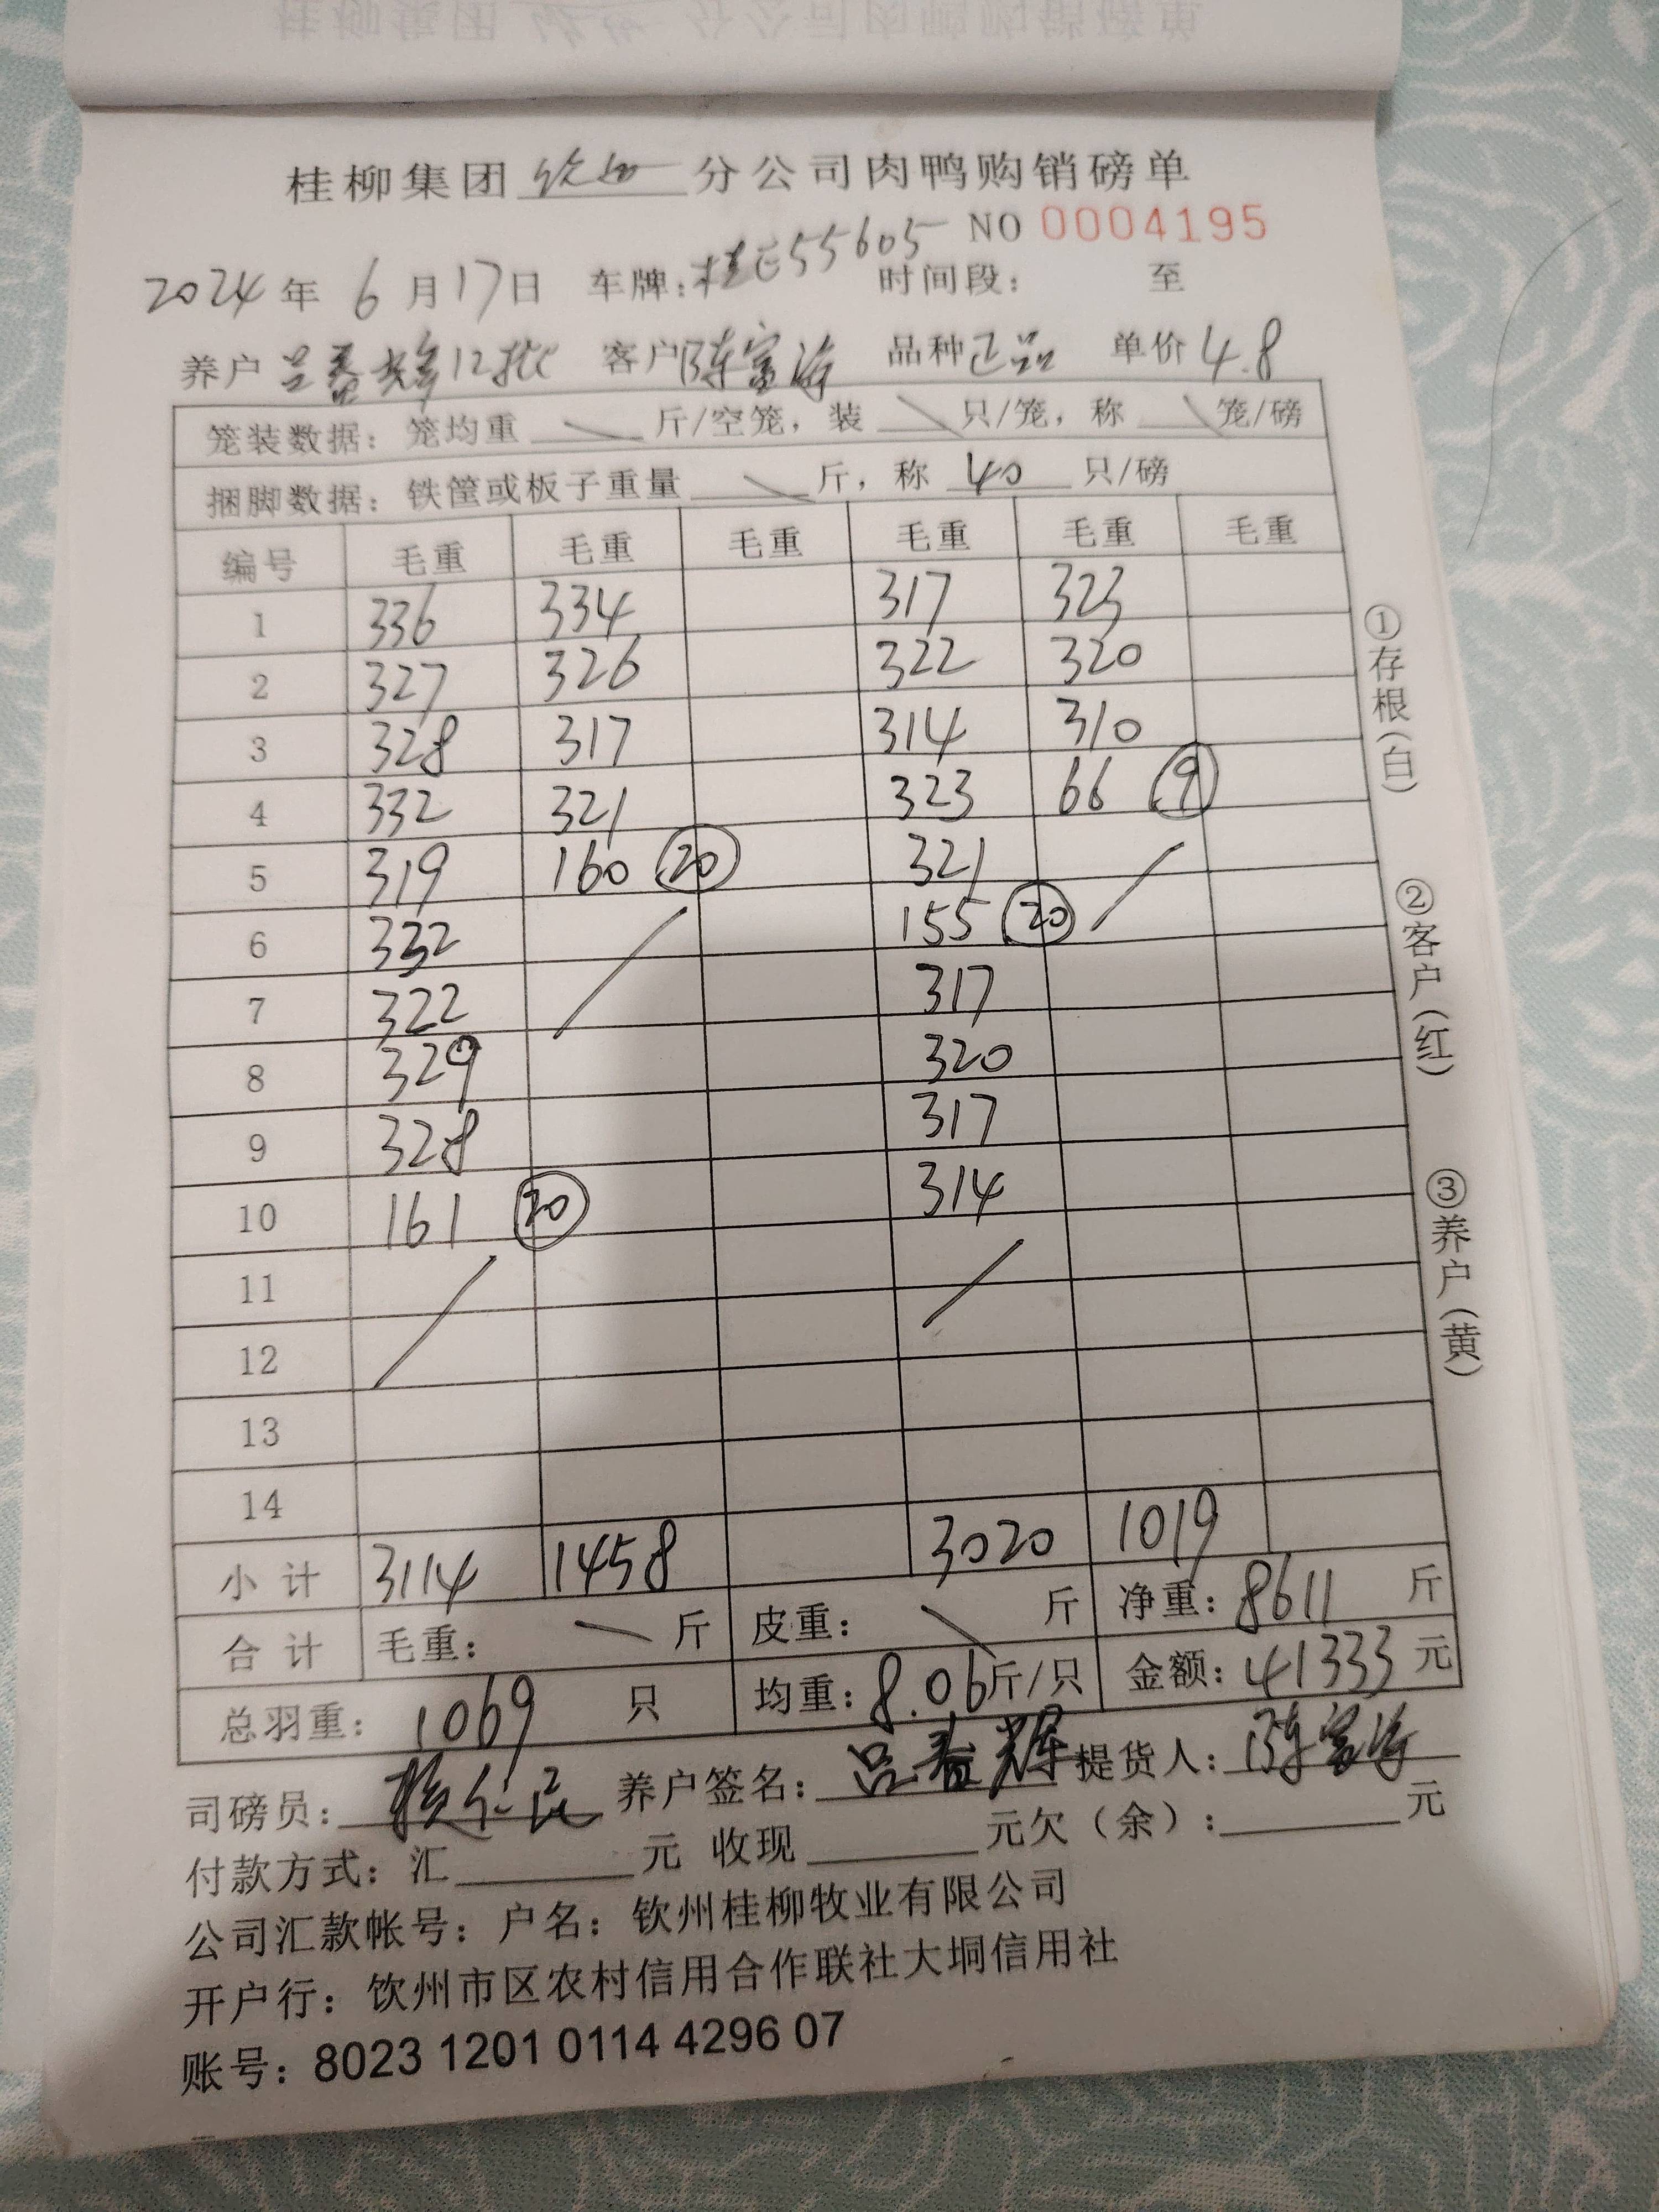 桂柳集团 钦州 分公司肉鸭购销磅单
NO 0004195
2024 年 6 月 17 日 车牌: 桂E55605 时间段: 至
养户 吕春辉12批 客户 陈富 品种 正品 单价 4.8
笼装数据: 笼均重 \ 斤/空笼, 装 \ 只/笼, 称 \ 笼/磅
捆脚数据: 铁筐或板子重量 \ 斤, 称 40 只/磅
编号 毛重 毛重 毛重 毛重 毛重 毛重
1 336 334 317 323
2 327 326 322 320
3 328 317 314 310
4 332 321 323 66 ⑨
5 319 160 ⑳ 321
6 332 155 ⑳
7 322 317
8 329 320
9 328 317
10 161 ⑳ 314
11
12
13
14
小计 3114 1458 3020 1019
合计 毛重: \ 斤 皮重: \ 斤 净重: 8611 斤
总羽重: 1069 只 均重: 8.06 斤/只 金额: 41333 元
司磅员: 养户签名: 吕春辉 提货人: 陈富
付款方式: 汇 元 收现 元欠(余): 元
公司汇款帐号: 户名: 钦州桂柳牧业有限公司
开户行: 饮州市区农村信用合作联社大垌信用社
账号: 8023 1201 0114 4296 07
①存根(白)
②客户(红)
③养户(黄)